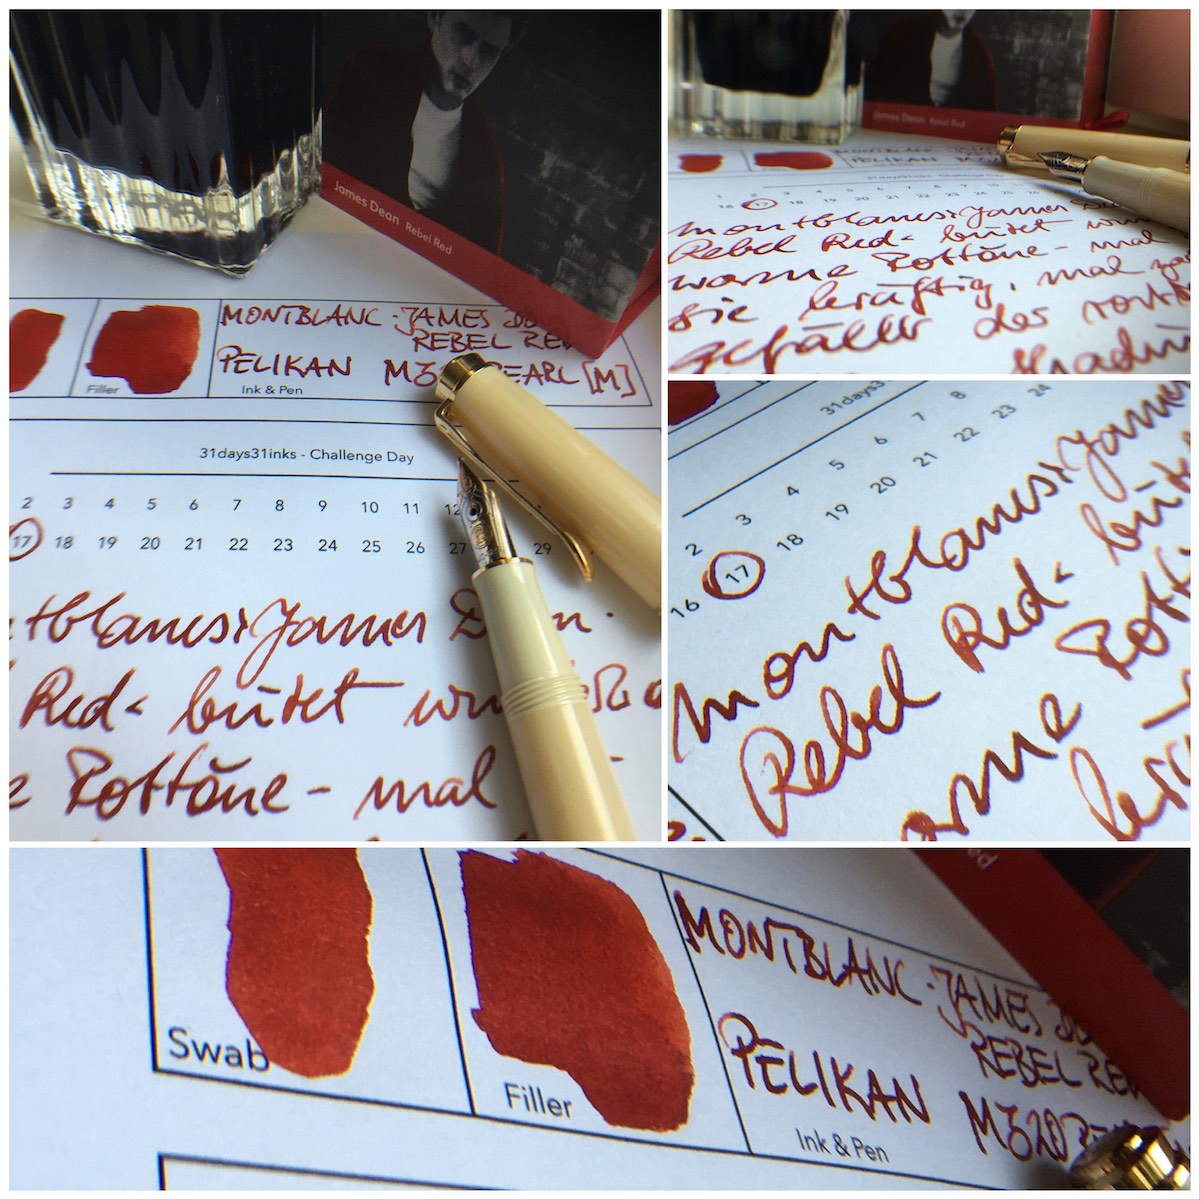 James Dean Rebel Red
MONTBLANC · JAMES
REBEL RE
PELIKAN M320 PEARL [M]
Filler
Ink & Pen
31days31inks - Challenge Day
2 3 4 5 6 7 8 9 10 11 12
17 18 19 20 21 22 23 24 25 26 27 29
tblancs James
Red - bietet
Rottöne - mal
James Dean Rebel Red
MONTBLANC
PELIKAN
31days31inks - Challenge
1 2 3 4 5 6 7 8 9
16 17 18 19 20 21 22 23 24 25
Montblancs James
Rebel Red - bietet
warme Rottöne - mal
sie kräftig, mal
gefällt das
31days3
2 3 4 5 6 7 8
16 17 18 19 20 21 22 23 24
Montblancs James
Rebel Red -
Rott
Swab
Filler
MONTBLANC · JAMES
REBEL RE
PELIKAN M320 PEA
Ink & Pen